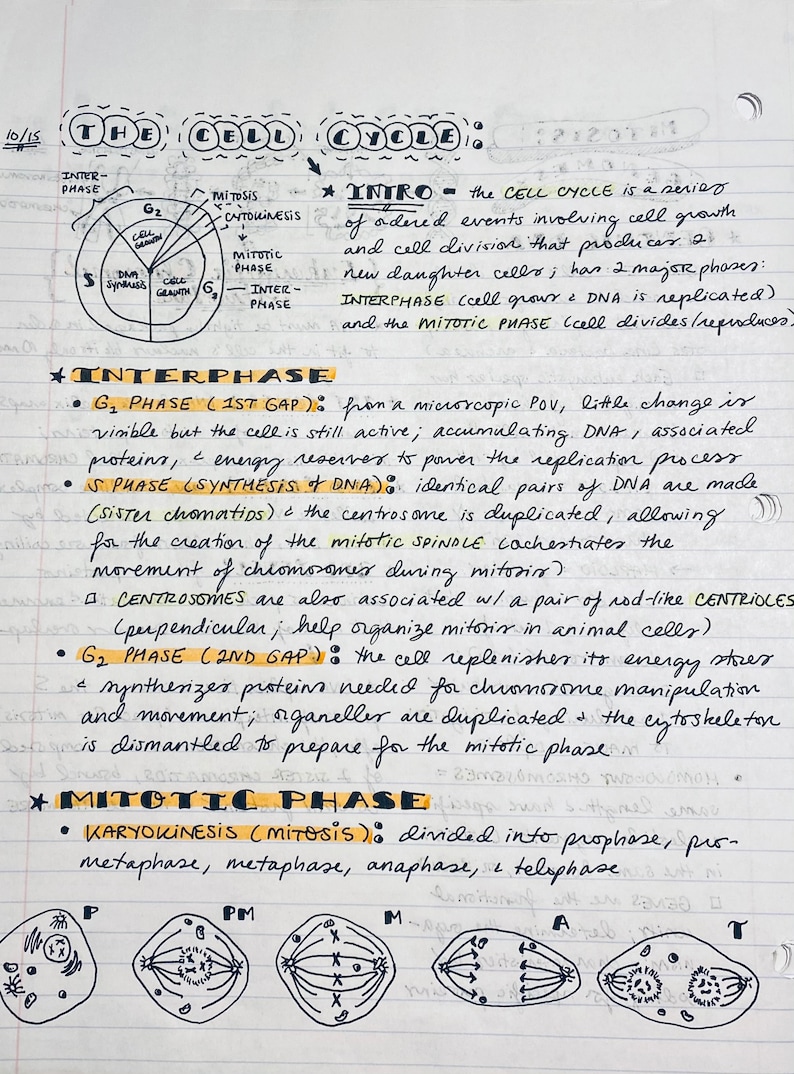 10/15 THE CELL CYCLE:
INTER-
PHASE
G2
MITOSIS
CYTOKINESIS
MITOTIC
PHASE
INTER-
PHASE
CELL
GROWTH
S
DNA
SYNTHESIS
CELL
GROWTH
G1
★ INTRO - the CELL CYCLE is a series
of ordered events involving cell growth
and cell division that produces 2
new daughter cells; has 2 major phases:
INTERPHASE (cell grows & DNA is replicated)
and the MITOTIC PHASE (cell divides/reproduces)
★ INTERPHASE
• G1 PHASE (1ST GAP): from a microscopic POV, little change is
visible but the cell is still active; accumulating DNA, associated
proteins, & energy reserves to power the replication process
• S PHASE (SYNTHESIS of DNA): identical pairs of DNA are made
(sister chomatids) & the centrosome is duplicated, allowing
for the creation of the mitotic SPINDLE (ochestrates the
movement of chromosomes during mitosis)
□ CENTROSOMES are also associated w/ a pair of rod-like CENTRIOLES
(perpendicular; help organize mitosis in animal cells)
• G2 PHASE (2ND GAP): the cell replenishes its energy stores
& synthesizes proteins needed for chromosome manipulation
and movement; organelles are duplicated & the cytoskeleton
is dismantled to prepare for the mitotic phase
★ MITOTIC PHASE
• KARYOKINESIS (MITOSIS): divided into prophase, pro-
metaphase, metaphase, anaphase, & telophase
P PM M A T